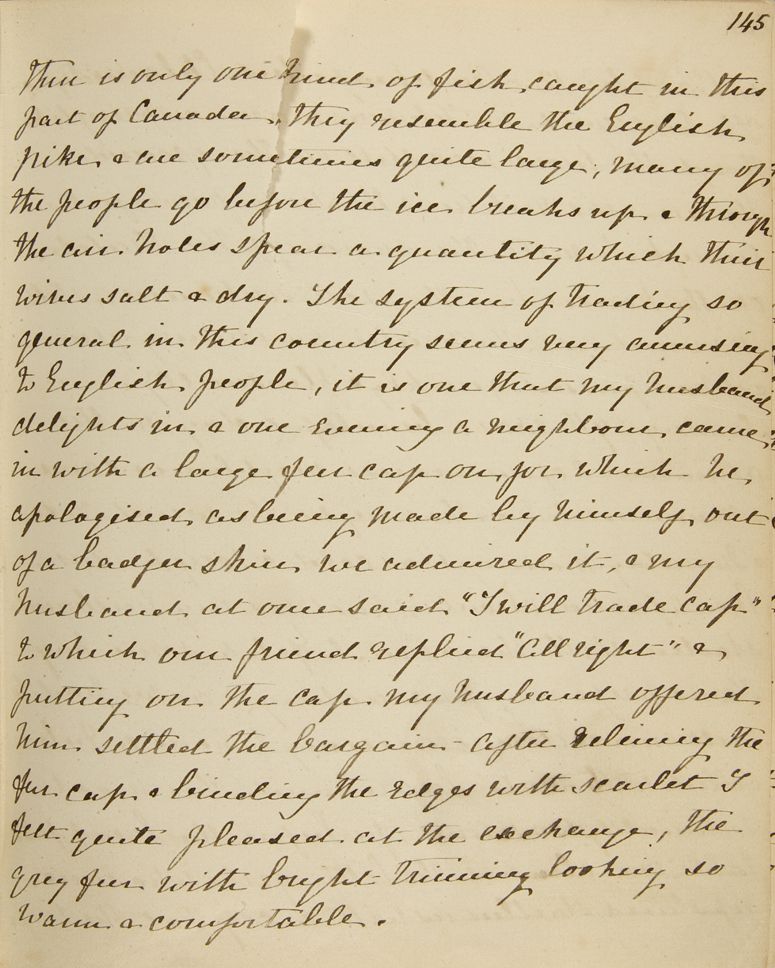 145
There is only one kind of fish caught in this
part of Canada, they resemble the English
pike & are sometimes quite large, many of
the people go before the ice breaks up & through
the air holes spear a quantity which their
wives salt & dry. The system of trading so
general in this country seems very amusing
to English people, it is one that my husband
delights in & one evening a neighbour came
in with a large fur cap on for which he
apologised as being made by himself out
of a badger skin we admired it, & my
husband at once said "I will trade cap"
to which our friend replied "All right" &
putting on the cap my husband offered
him settled the bargain - after relining the
fur cap & binding the edges with scarlet I
felt quite pleased at the exchange, the
grey fur with bright trimming looking so
warm & comfortable.